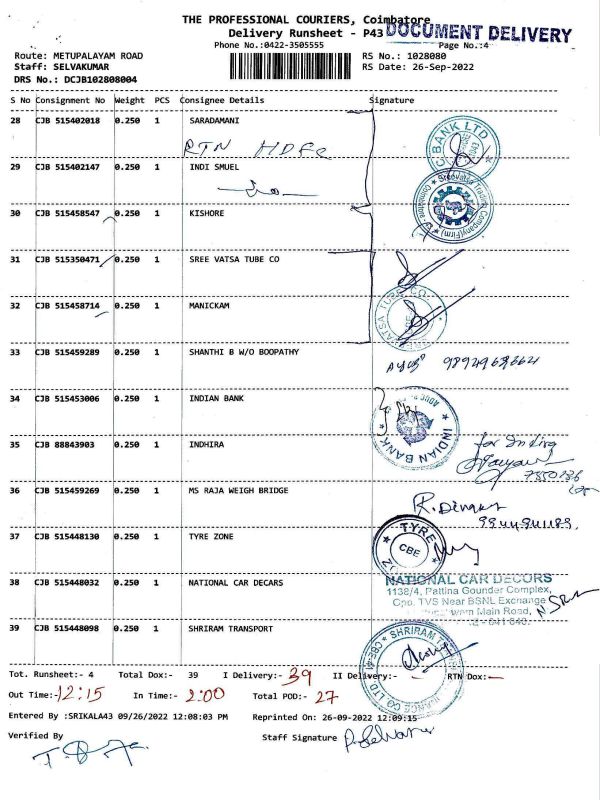 THE PROFESSIONAL COURIERS, Coimbatore
Delivery Runsheet - P43
DOCUMENT DELIVERY
Phone No.:0422-3505555
Page No.:4
Route: METUPALAYAM ROAD
RS No.: 1028080
Staff: SELVAKUMAR
RS Date: 26-Sep-2022
DRS No.: DCJB102808004
S No Consignment No Weight PCS Consignee Details Signature
28 CJB 515402018 0.250 1 SARADAMANI
RTN HDFC
C BANK LTD
29 CJB 515402147 0.250 1 INDI SMUEL
Sreevatsa Tra
Company(Firm)
30 CJB 515458547 0.250 1 KISHORE
31 CJB 515350471 0.250 1 SREE VATSA TUBE CO
32 CJB 515458714 0.250 1 MANICKAM
VATSA TUBE CO
33 CJB 515459289 0.250 1 SHANTHI B W/O BOOPATHY
34 CJB 515453006 0.250 1 INDIAN BANK
INDIAN BANK
35 CJB 88843903 0.250 1 INDHIRA
for Indira
36 CJB 515459269 0.250 1 MS RAJA WEIGH BRIDGE
37 CJB 515448130 0.250 1 TYRE ZONE
TYRE
CBE
38 CJB 515448032 0.250 1 NATIONAL CAR DECARS
NATIONAL CAR DECORS
1138/4, Pattina Gounder Complex,
Opp. TVS Near BSNL Exchange
Main Road,
39 CJB 515448098 0.250 1 SHRIRAM TRANSPORT
SHRIRAM
Tot. Runsheet:- 4 Total Dox:- 39 I Delivery:- 39 II Delivery:- — RTN Dox:- —
Out Time:- 12:15 In Time:- 2:00 Total POD:- 27
Entered By :SRIKALA43 09/26/2022 12:08:03 PM Reprinted On: 26-09-2022 12:09:15
Verified By
Staff Signature